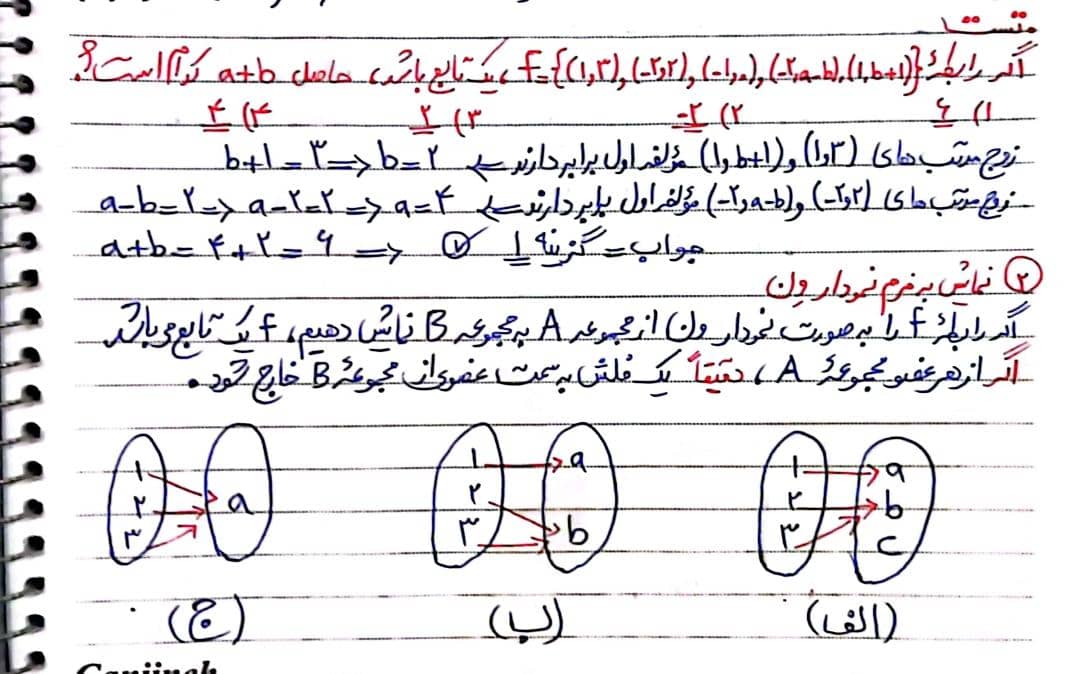 تست:
اگر رابطهٔ f={(۱,۳),(-۲,۲),(-۱,۰),(-۲,a-b),(۱,b+1)} یک تابع باشد، حاصل a+b کدام است؟
۱) ۶ ۲) -۲ ۳) ۲ ۴) ۴
زوج مرتب های (۱,۳) و (۱,b+۱) مؤلفه اول برابر دارند => b+۱=۳ => b=۲
زوج مرتب های (-۲,۲) و (-۲,a-b) مؤلفه اول برابر دارند => a-b=۲ => a-۲=۲ => a=۴
a+b=۴+۲=۶ => جواب = گزینه ۱
۲ نمایش به فرم نمودار ون
اگر رابطهٔ f را به صورت نمودار ون از مجموعه A به مجموعه B نمایش دهیم، f یک تابع می باشد
اگر از هر عضو مجموعهٔ A، دقیقاً یک فلش به سمت عضوی از مجموعهٔ B خارج شود.
۱ a ۱ a ۱
۲ b ۲ ۲ a
۳ c ۳ b ۳
(الف) (ب) (ج)
Ganjinah